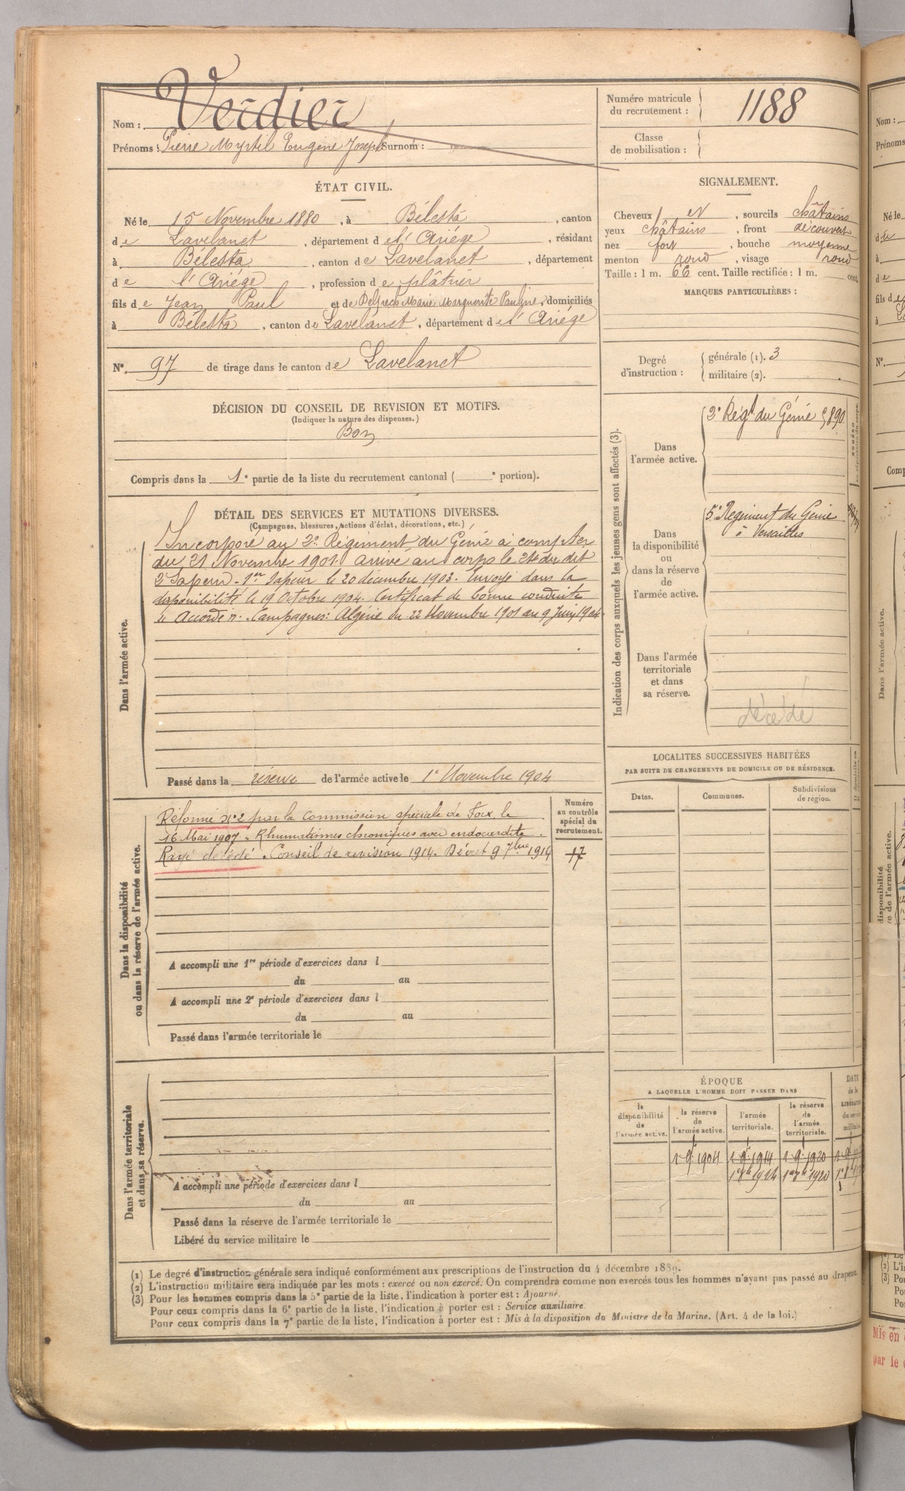 Nom : Verdier
Prénoms : Pierre Myrtil Eugène Joseph Surnom :
Numéro matricule du recrutement : 1188
Classe de mobilisation :
ÉTAT CIVIL.
Né le 15 Novembre 1880, à Bélesta, canton
de Lavelanet, département de l'Ariége, résidant
à Bélesta, canton de Lavelanet, département
de l'Ariége, profession de plâtrier
fils de Jean Paul et de Marie Marguerite Pauline, domiciliés
à Bélesta, canton de Lavelanet, département de l'Ariége
N° 97 de tirage dans le canton de Lavelanet
DÉCISION DU CONSEIL DE REVISION ET MOTIFS.
(Indiquer la nature des dispenses.)
Bon
Compris dans la 1e partie de la liste du recrutement cantonal ( e portion).
SIGNALEMENT.
Cheveux et, sourcils châtains
yeux châtains, front découvert
nez fort, bouche moyenne
menton rond, visage rond
Taille : 1 m. 66 cent. Taille rectifiée : 1 m. cent.
MARQUES PARTICULIÈRES :
Degré d'instruction :
générale (1). 3
militaire (2).
DÉTAIL DES SERVICES ET MUTATIONS DIVERSES.
(Campagnes, blessures, actions d'éclat, décorations, etc.)
Dans l'armée active.
Incorporé au 2e Régiment du Génie à compter
du 21 Novembre 1901. Arrivé au corps le dit
2e Sapeur. 1er Sapeur le 20 décembre 1903. Envoyé dans la
disponibilité le 19 Octobre 1904. Certificat de bonne conduite
Accordé. Campagnes: Algérie du 22 Novembre 1901 au 9 Juin 1904.
Passé dans la réserve de l'armée active le 1er Novembre 1904
Indication des corps auxquels les jeunes gens sont affectés (3).
Dans l'armée active.
2e Régt du Génie
Dans la disponibilité ou dans la réserve de l'armée active.
5e Régiment du Génie
à Versailles
Dans l'armée territoriale et dans sa réserve.
décédé
Dans la disponibilité ou dans la réserve de l'armée active.
Réformé n° 2 par la Commission spéciale de Foix le
16 Mai 1907. Rhumatismes chroniques avec endocardite.
Rayé décédé. Conseil de revision 1914. Décét 9 7bre 1914
Numéro au contrôle spécial du recrutement.
17
A accompli une 1re période d'exercices dans l
du au
A accompli une 2e période d'exercices dans l
du au
Passé dans l'armée territoriale le
LOCALITÉS SUCCESSIVES HABITÉES
PAR SUITE DE CHANGEMENTS DE DOMICILE OU DE RÉSIDENCE.
Dates. Communes. Subdivisions de région.
Dans l'armée territoriale et dans sa réserve.
A accompli une période d'exercices dans l
du au
Passé dans la réserve de l'armée territoriale le
Libéré du service militaire le
ÉPOQUE
A LAQUELLE L'HOMME DOIT PASSER DANS
la disponibilité de l'armée active. la réserve de l'armée active. l'armée territoriale. la réserve de l'armée territoriale.
(1) Le degré d'instruction générale sera indiqué conformément aux prescriptions de l'instruction du 4 décembre 1889.
(2) L'instruction militaire sera indiquée par les mots : exercé ou non exercé. On comprendra comme non exercés tous les hommes n'ayant pas passé au drapeau.
(3) Pour les hommes compris dans la 5e partie de la liste, l'indication à porter est : Ajourné.
Pour ceux compris dans la 6e partie de la liste, l'indication à porter est : Service auxiliaire.
Pour ceux compris dans la 7e partie de la liste, l'indication à porter est : Mis à la disposition du Ministre de la Marine. (Art. 4 de la loi.)